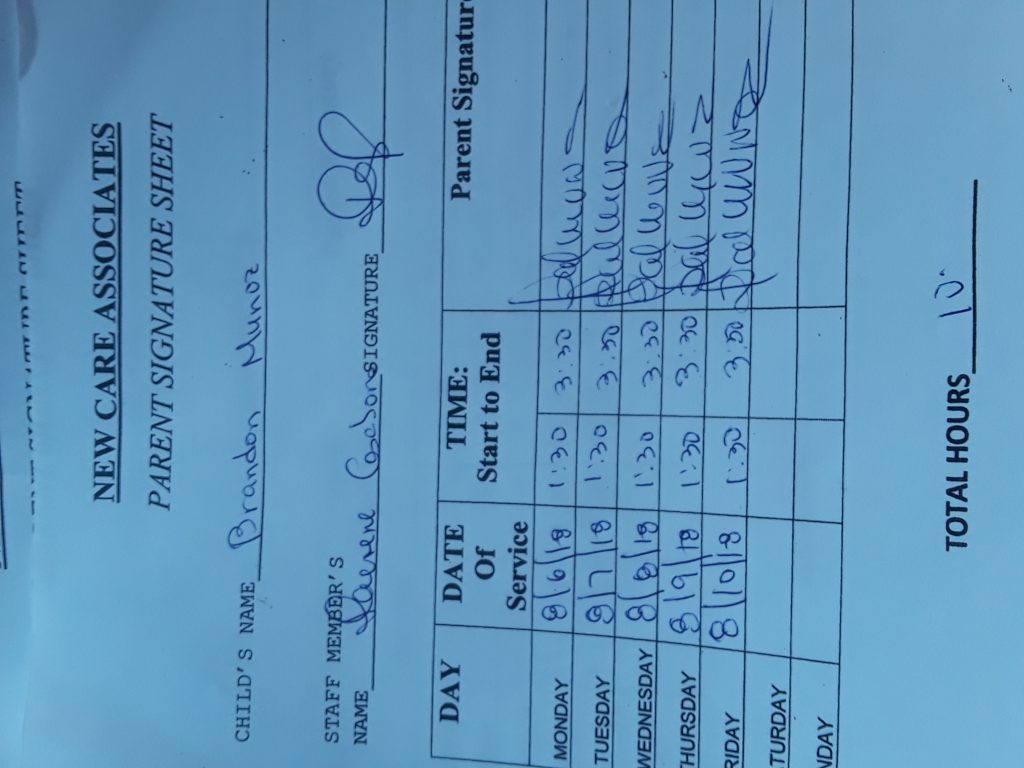 NEW CARE ASSOCIATES
PARENT SIGNATURE SHEET
CHILD'S NAME Brandon Munoz
STAFF MEMBER'S
NAME SIGNATURE
DAY DATE Of Service TIME: Start to End Parent Signature
MONDAY 8/6/18 1:30 3:30
TUESDAY 8/7/18 1:30 3:30
WEDNESDAY 8/8/18 1:30 3:30
THURSDAY 8/9/18 1:30 3:30
RIDAY 8/10/18 1:30 3:30
TURDAY
NDAY
TOTAL HOURS 10